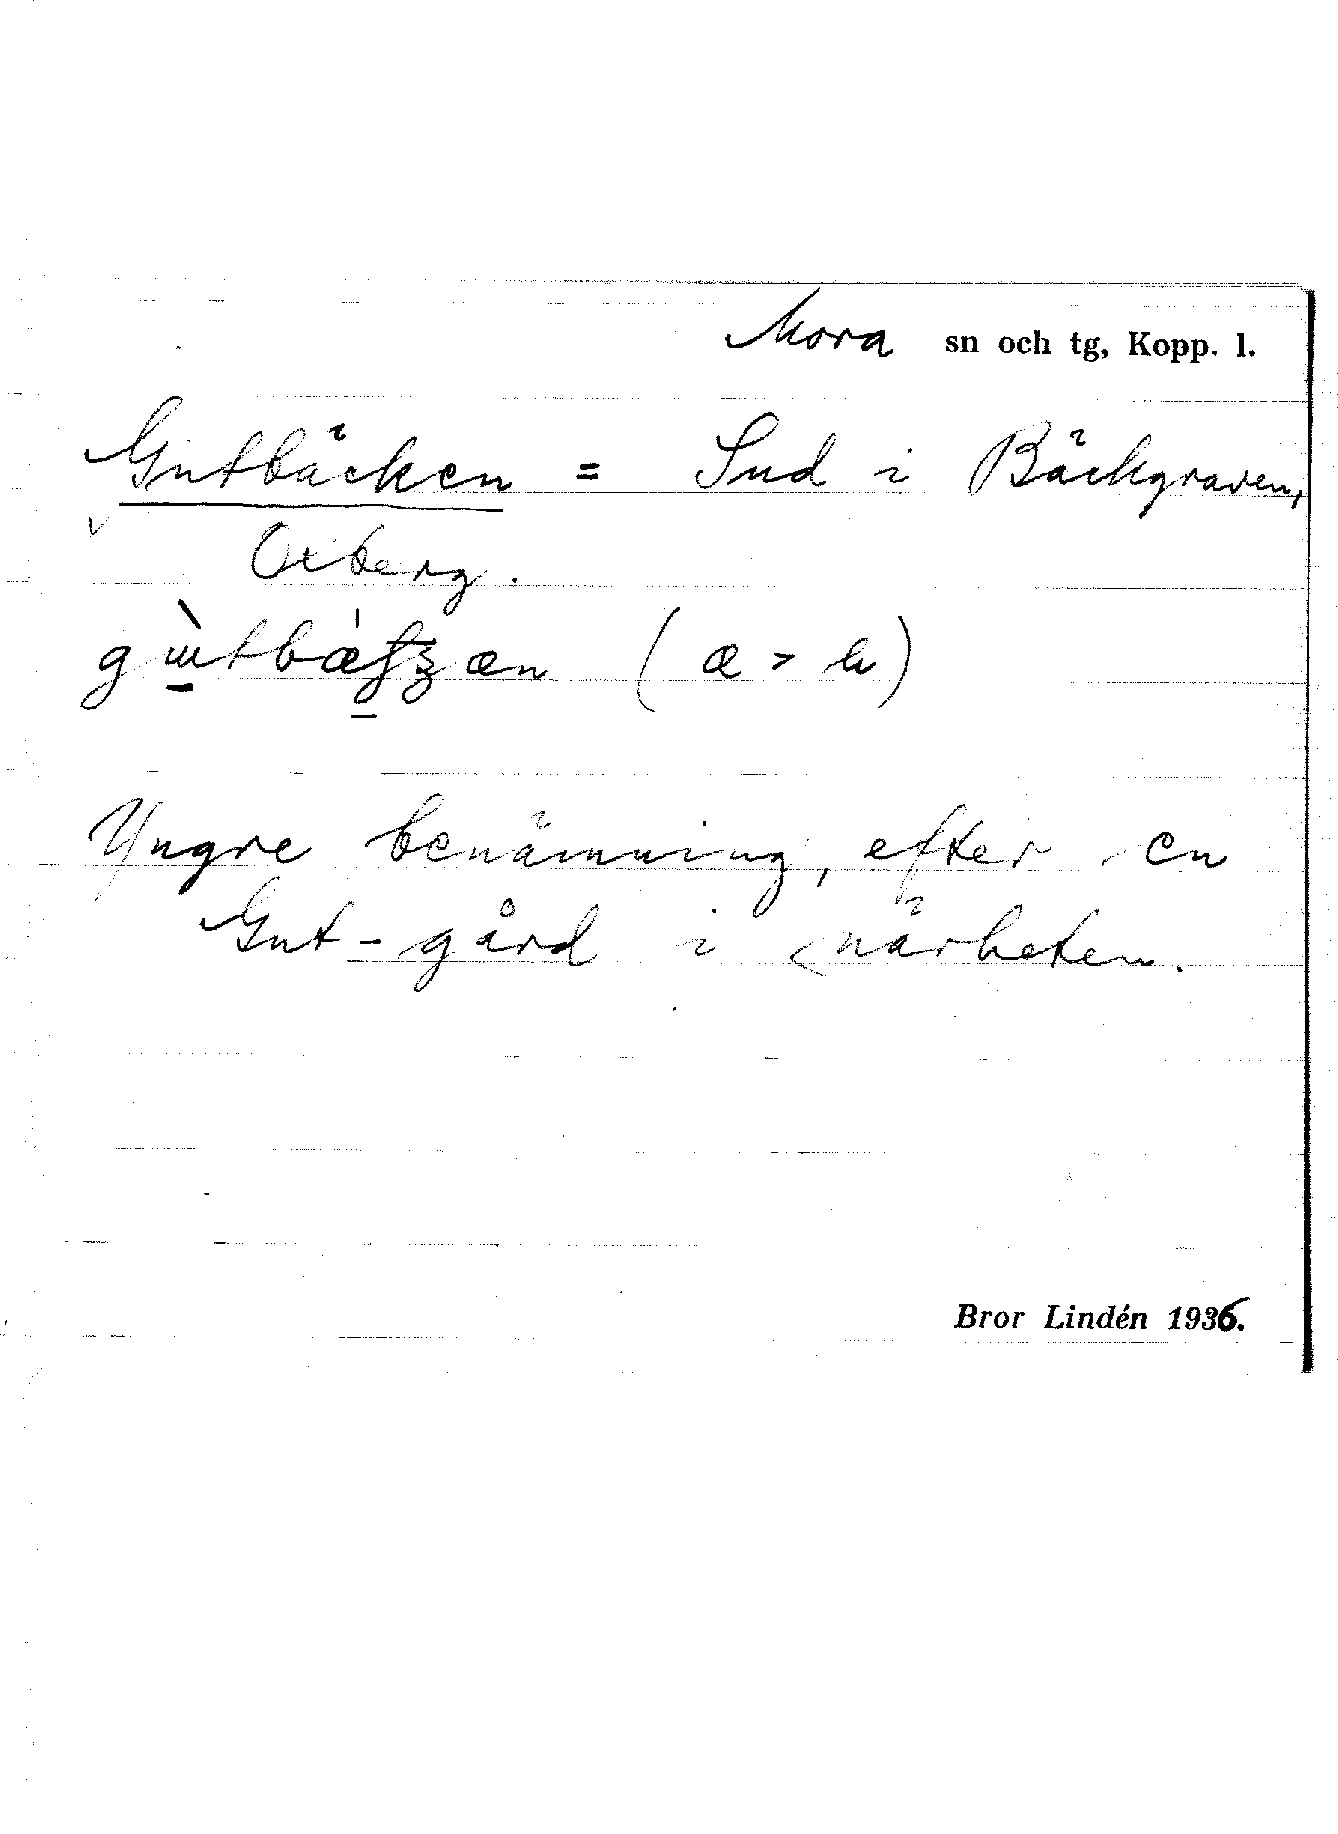 Mora sn och tg, Kopp. l.
Gutbäcken = Sud i Bäckgraven,
Oxberg.
(æ > )
Yngre benämning, efter en
Gut-gård i närheten.
Bror Lindén 1936.